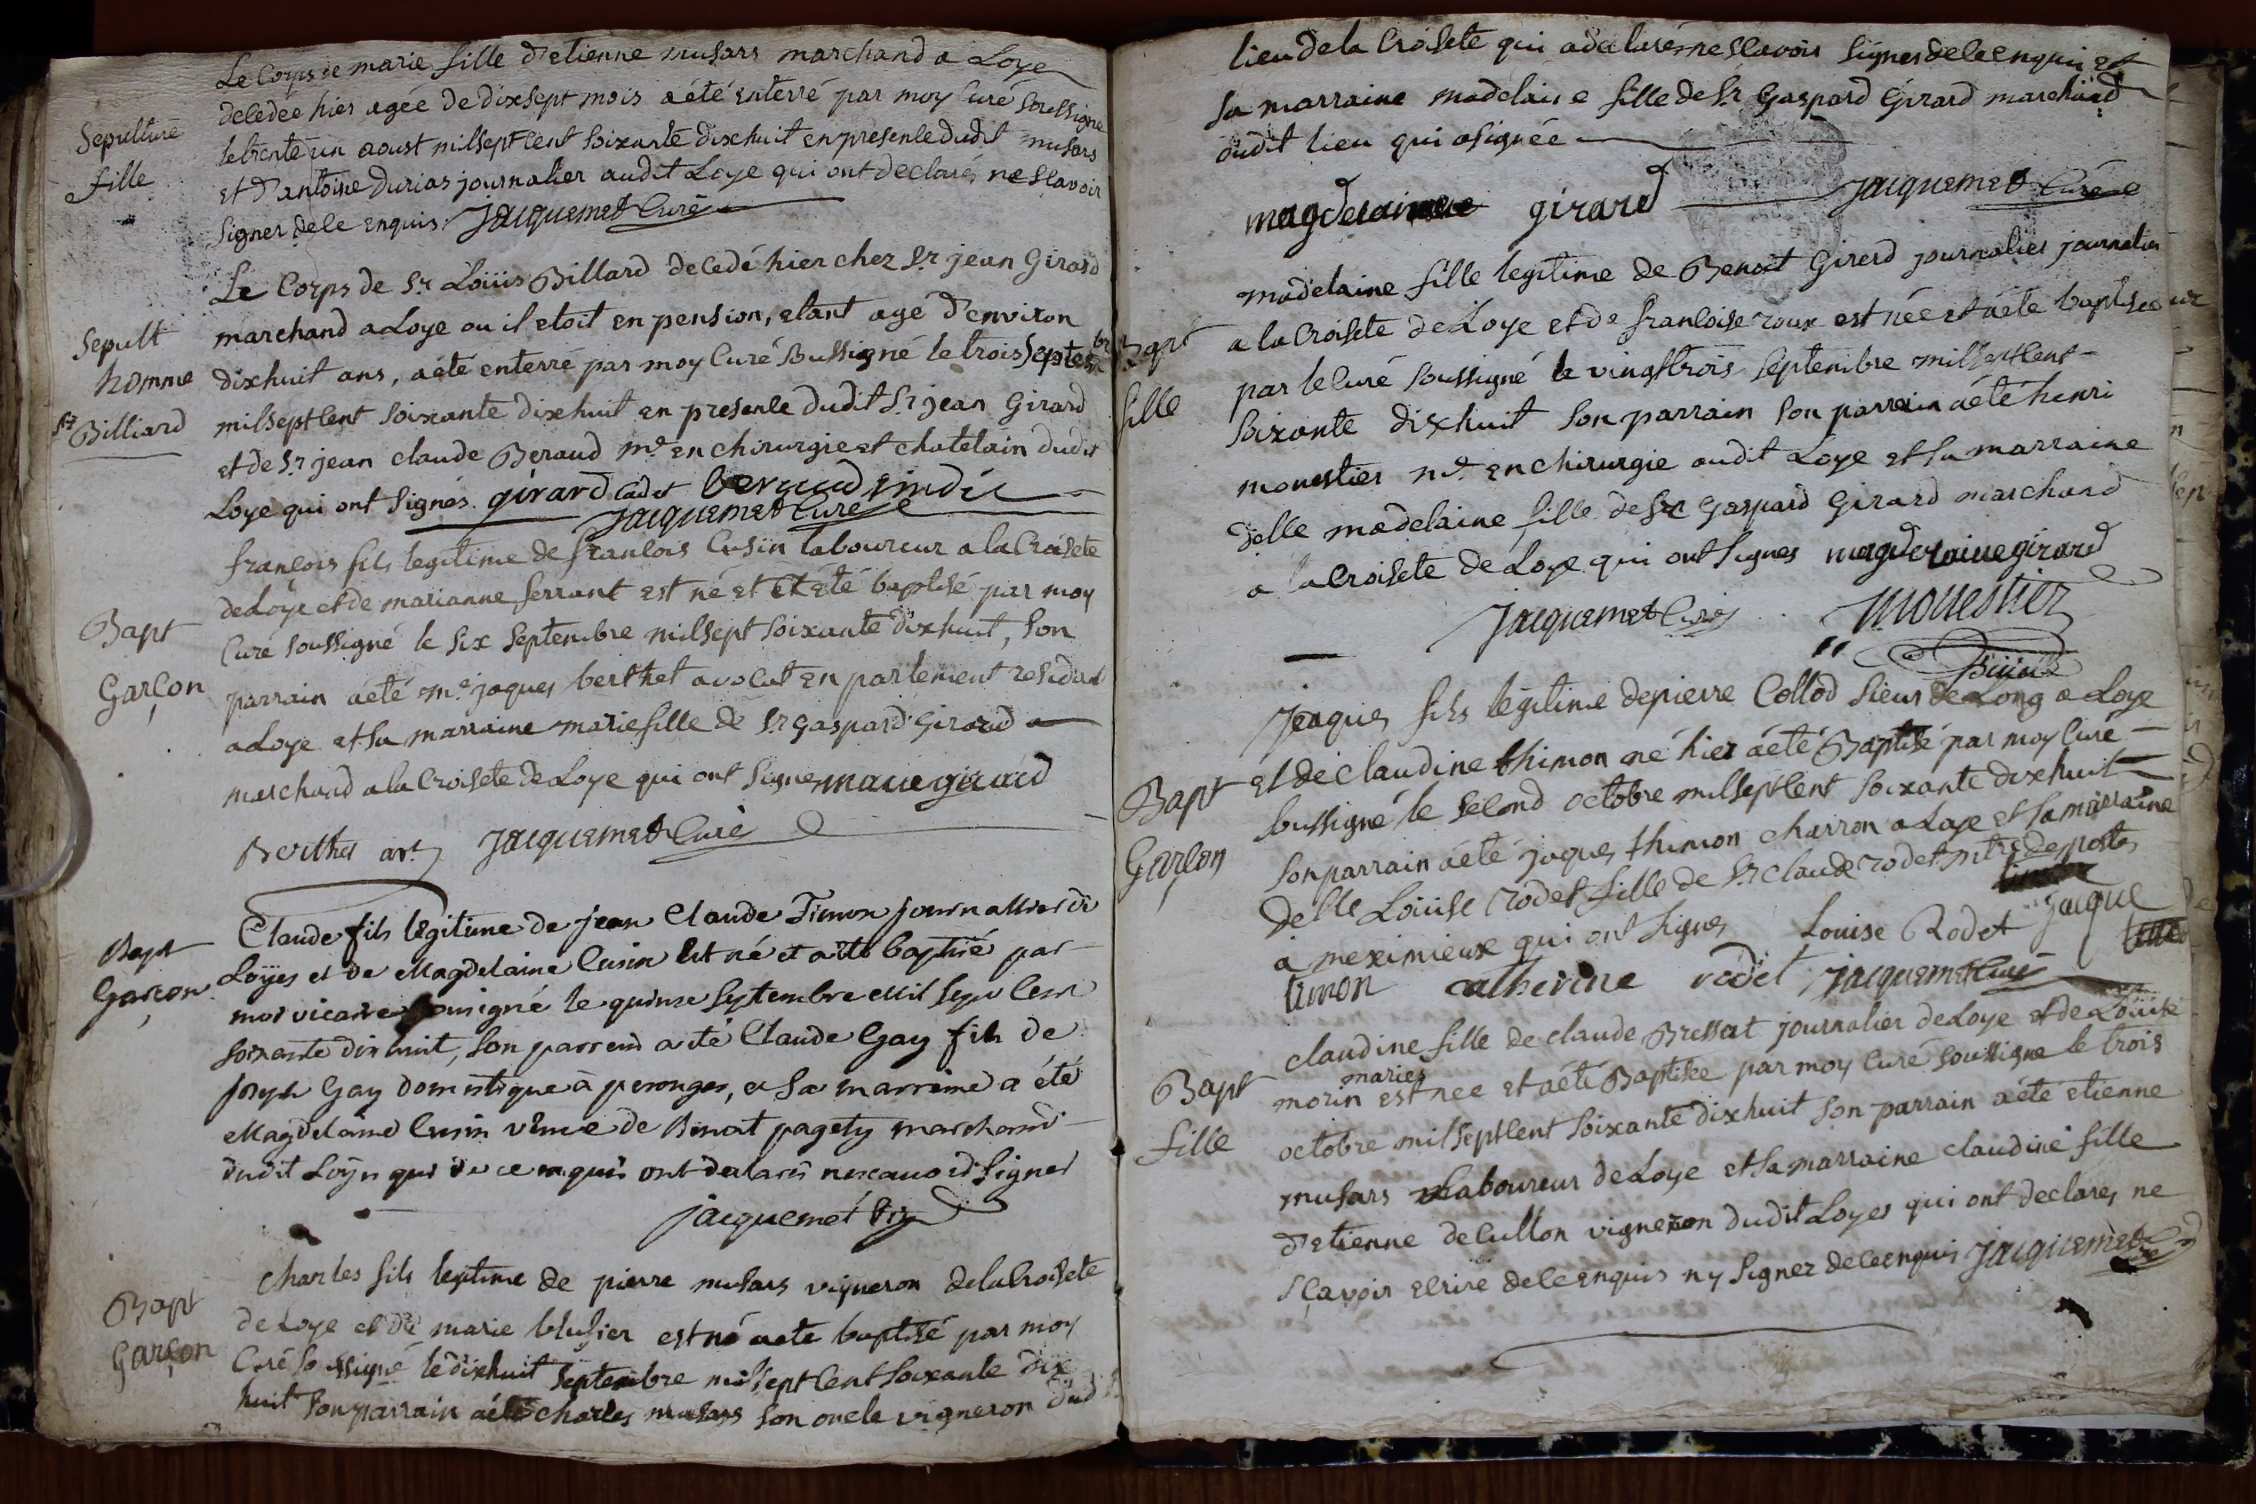 Le Corps de marie fille d'etienne musars marchand a Loye
Sepulture
decedée hier agée de dixsept mois a été enterré par moy Curé Soussigné
fille
le trente un aoust milsept cent soixante dixhuit en presence dudit musars
et d'antoine durias journalier audit Loye qui ont declarés ne scavoir
signer de ce enquis Jacquemet Curé
Le Corps de Sr Loüis Billard decedé hier chez Sr jean Girard
Sepult
marchand a Loye ou il etoit en pension, etant agé d'environ
homme
dixhuit ans, a été enterré par moy Curé Sussigné le trois Septembre
Sr Billiard
milsept cent soixante dixhuit en presence dudit Sr jean Girard
et de Sr jean claude Beraud me en chirurgie et chatelain dudit
Loye qui ont signés girard cadet beraud sindic
Jacquemet Curé
françois fils legitime de francois Cusin laboureur a la Croisete
de Loye et de marianne ferrant est né et et été baptisé par moy
Bapt
Curé soussigné le six Septembre milsept soixante dixhuit, son
Garçon
parrain a été me jaques berthet avocat en parlement residant
a Loye et sa marraine marie fille de Sr gaspard Girard
marchand a la Croisete de Loye qui ont signe marie girard
Berthet avt Jacquemet Curé
Claude fils legitime de jean Claude Timon journallier di
Bapt
Loyes et de Magdelaine Cusin est né et a été baptisé par
Garcon
moi vicaire soussigné le quinze Septembre Mil Sept Cent
soixante dix huit, son parrein a été Claude Gay fils de
joseph Gay domestique à perouges, et Sa marreine a été
Magdelaine Cusin veuve de Benoit pagety marchand
dudit Loyes qui de ce enquis ont declarés ne scavoir signer
jacquemet vic
charles fils legitime de pierre musars vigneron de la Croisete
Bapt
de Loye et de marie blusier est né a ete baptisé par moy
Garçon
Curé Soussigné le dixhuit Septembre mil sept cent soixante dix
huit son parrain a été charles musars son oncle vigneron dud
lieu de la Croisete qui a declaré ne scavoir signer de ce enquis et
sa marraine madelaine fille de Sr Gaspard Girard marchand
audit lieu qui a signée
magdelaine girard Jacquemet Curé
madelaine fille legitime de Benoit Girerd journalier journalier
Bapt
a la Croisete de Loye et de francoise roux est née et a été baptisée
fille
par le Curé Soussigné le vingttrois Septembre mil sept cent
Soixante dixhuit son parrain son parrain a été henri
monestier me en chirurgie audit Loye et sa marraine
delle madelaine fille de Sr Gaspard Girard marchand
a la Croisete de Loye qui ont signes magdelaine girard
Jacquemet Curé monestier
Jeaques fils légitime de pierre Collod Sieur de Long a Loye
Bapt
et de Claudine thimon né hier a été Baptisé par moy Curé
Garçon
sussigné le second octobre milsept cent soixante dixhuit
son parrain a été jaques thimon charron a Loye et sa marraine
delle Loüise Rodet fille de Sr Claude rodet mtre de postes
a meximieux qui ont signes Louise Rodet jaque
timon catherine rodet Jacquemet Curé
claudine fille de claude Bressat journalier de Loye et de Loüise
Bapt
maries
morin est nee et a été Baptisée par moy Curé Soussigne le trois
fille
octobre milsept cent soixante dixhuit son parrain a été etienne
musars laboureur de Loye et sa marraine claudine fille
d'etienne de Cullon vigneron dudit Loyes qui ont declares ne
sçavoir ecrire de ce enquis ny signer de ce enquis Jacquemet